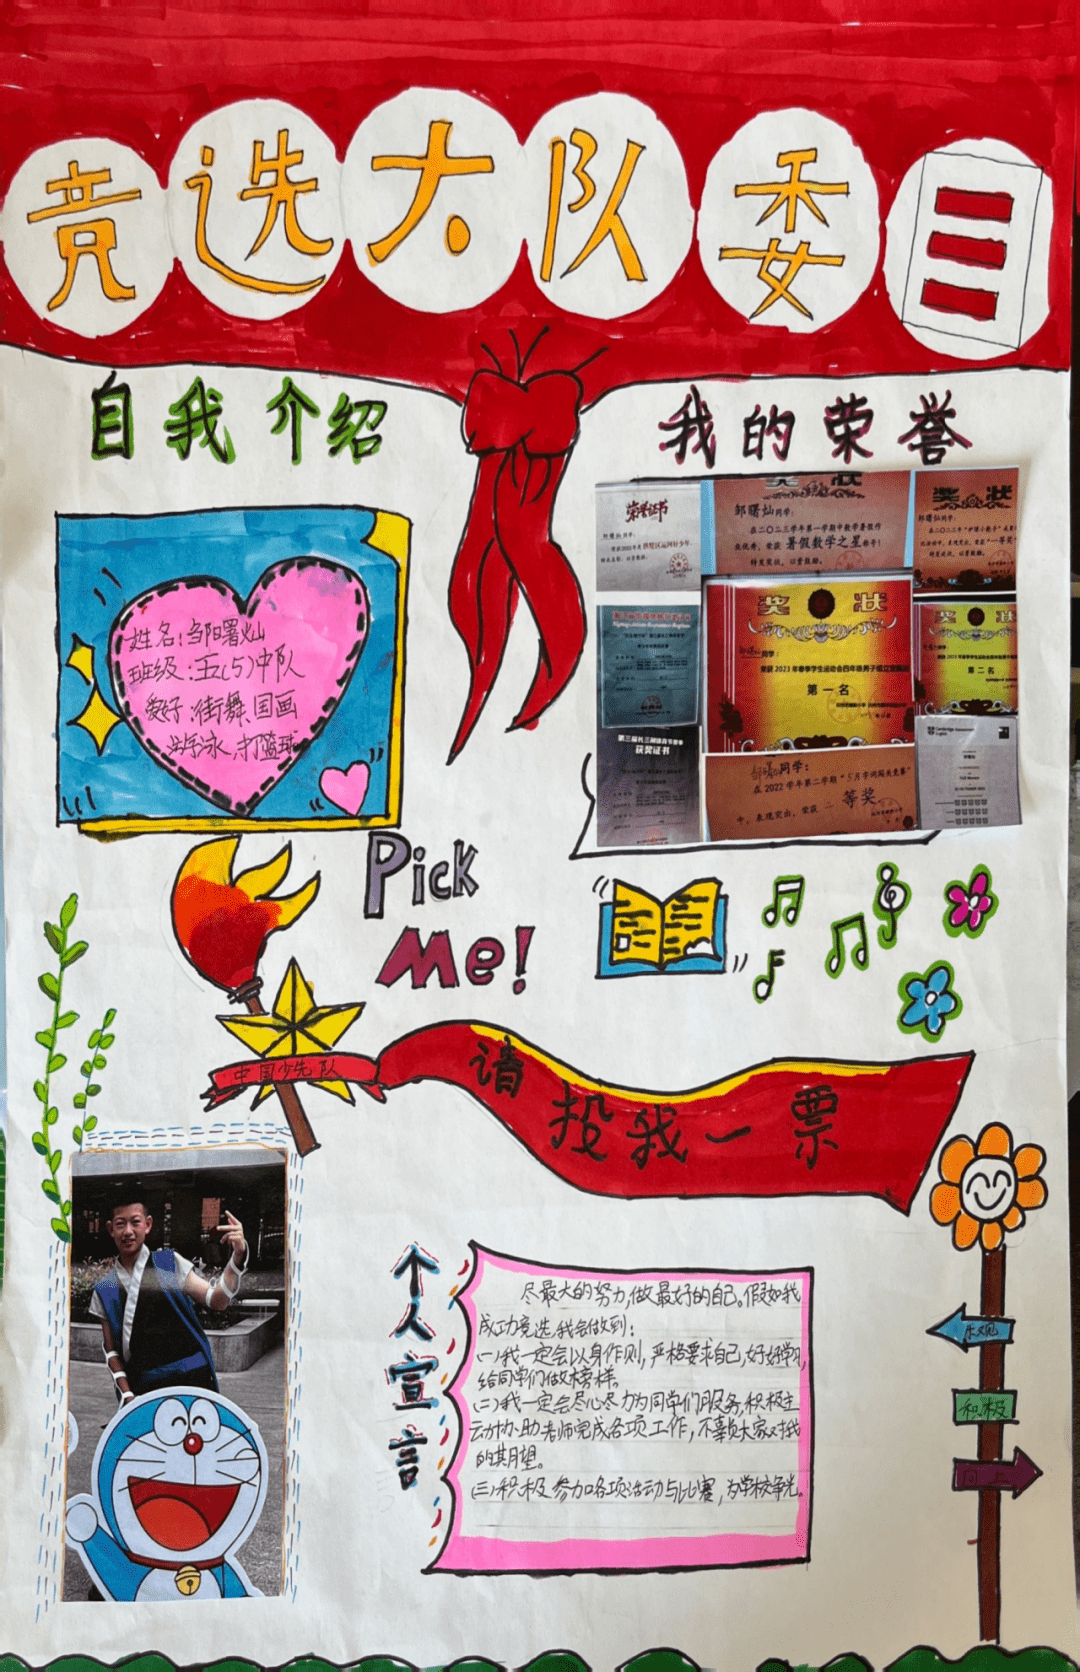 竞选大队委
自我介绍
我的荣誉
姓名:邹曙灿
班级:五(5)中队
爱好:街舞、国画
游泳、打篮球
荣誉证书
奖状
邹曙灿同学:
在二〇二三学年第一学期中数学暑假作
业优秀,荣获 暑假数学之星称号!
特发奖状,以资鼓励。
奖状
邹曙灿同学:
特发奖状,以资鼓励。
奖状
同学:
荣获 2023 年春季学生运动会四年级男子组立定跳远
第一名
奖状
第二名
获奖证书
邹曙灿同学:
在 2022 学年第二学期“5月字词闯关竞赛”
中,表现突出,荣获 二 等奖
Cambridge Assessment
English
Pick
Me!
中国少先队
请投我一票
个人宣言
尽最大的努力,做最好的自己。假如我
成功竞选,我会做到:
(一)我一定会以身作则,严格要求自己,好好学习,
给同学们做榜样。
(二)我一定会尽心尽力为同学们服务,积极主
动协助老师完成各项工作,不辜负大家对我
的期望。
(三)积极参加各项活动与比赛,为学校争光。
乐观
积极
向上